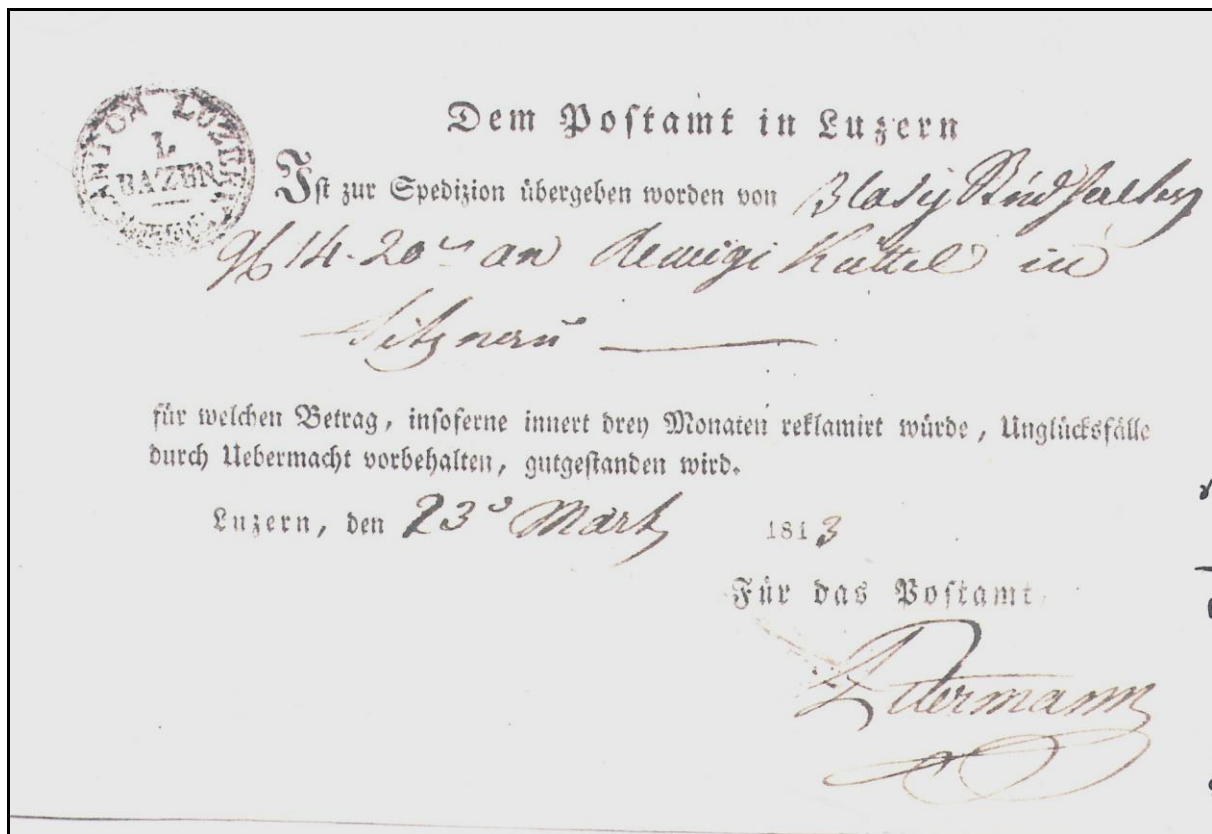 KANTON LUZERN
I.
BAZEN
Dem Postamt in Luzern
Ist zur Spedizion übergeben worden von Blasy
14.20 an Remigi Küttel in
Vitznau
für welchen Betrag, insoferne innert drey Monaten reklamirt würde, Unglücksfälle
durch Uebermacht vorbehalten, gutgestanden wird.
Luzern, den 23 März 1813
Für das Postamt